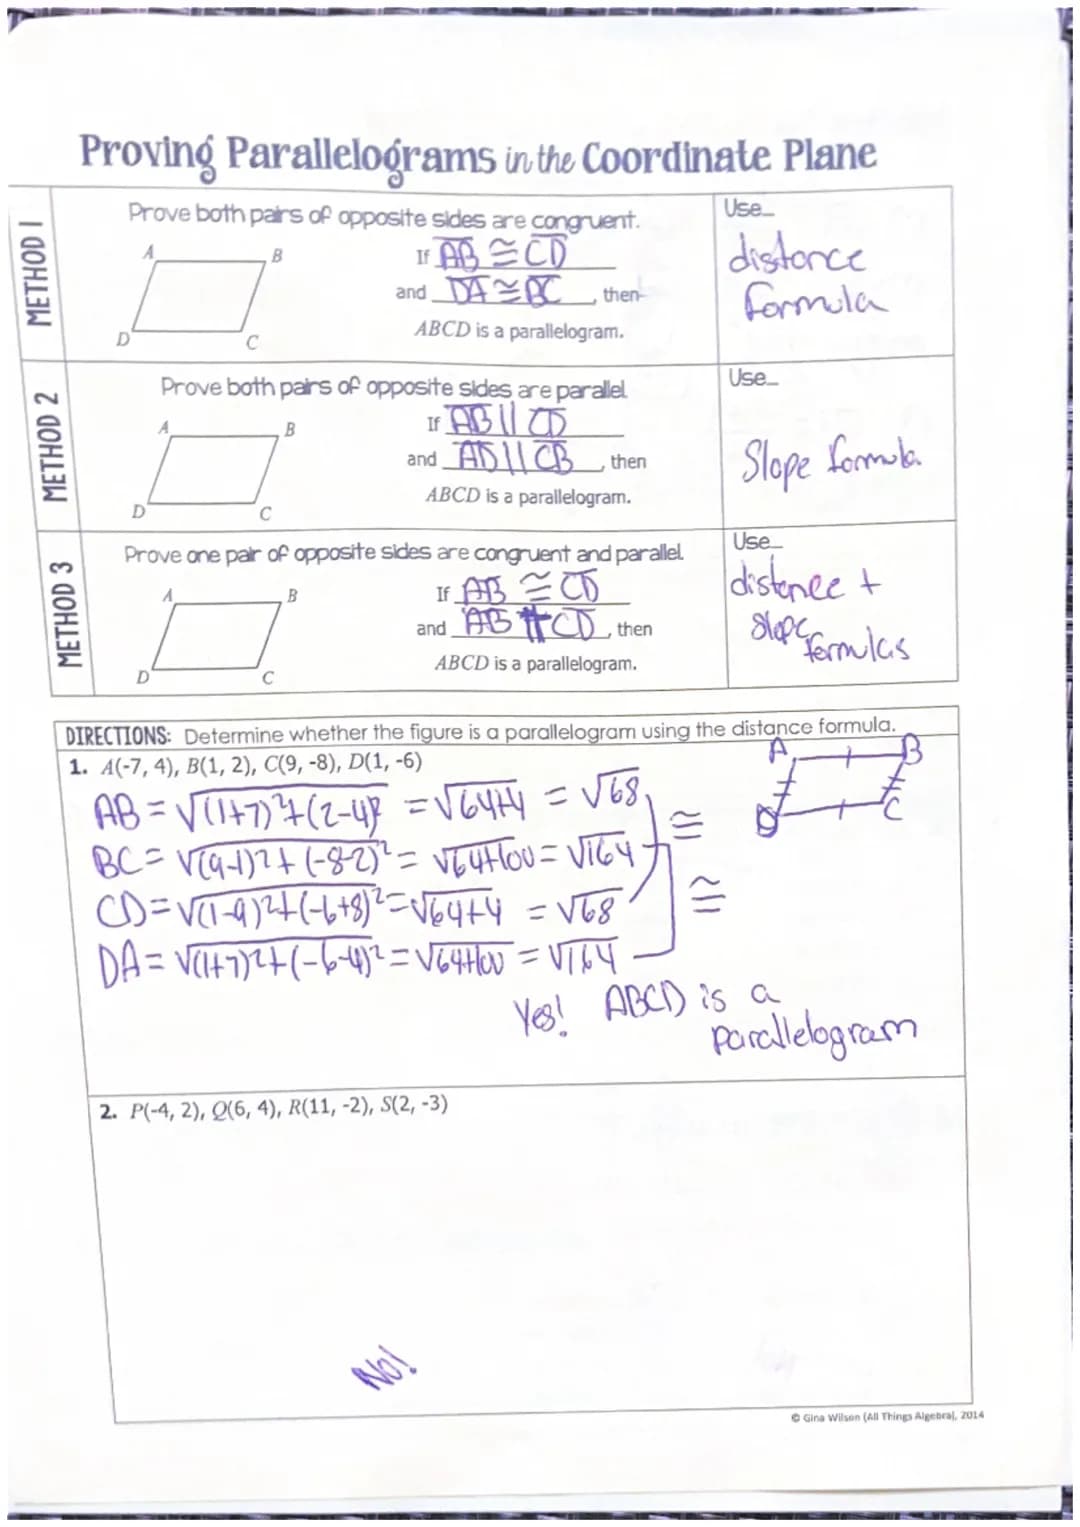 Proving Parallelograms in the Coordinate Plane
METHOD 1
Prove both pairs of opposite sides are congruent.
A
B
D
C
If AB ≅ CD
and DA ≅ BC, then
ABCD is a parallelogram.
Use...
distance
formula
METHOD 2
Prove both pairs of opposite sides are parallel.
A
B
D
C
If AB || CD
and AD || CB, then
ABCD is a parallelogram.
Use...
Slope formula
METHOD 3
Prove one pair of opposite sides are congruent and parallel.
A
B
D
C
If AB ≅ CD
and AB || CD, then
ABCD is a parallelogram.
Use...
distance +
slope
formulas
DIRECTIONS: Determine whether the figure is a parallelogram using the distance formula.
1. A(-7, 4), B(1, 2), C(9, -8), D(1, -6)
A
B
D
C
AB = √(1+7)²+(2-4)² = √64+4 = √68
≅
BC = √(9-1)²+(-8-2)² = √64+100 = √164
CD = √(1-9)²+(-6+8)² = √64+4 = √68
≅
DA = √(1+7)²+(-6-4)² = √64+100 = √164
Yes! ABCD is a
parallelogram
2. P(-4, 2), Q(6, 4), R(11, -2), S(2, -3)
No!
© Gina Wilson (All Things Algebra), 2014